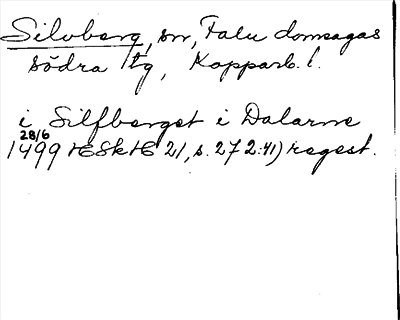 Silvberg, sn, Falu domsagas
södra tg, Kopparb. l.
i Silfberget i Dalarne
28/6
1499 HSkH 21, s. 272:41) regest.